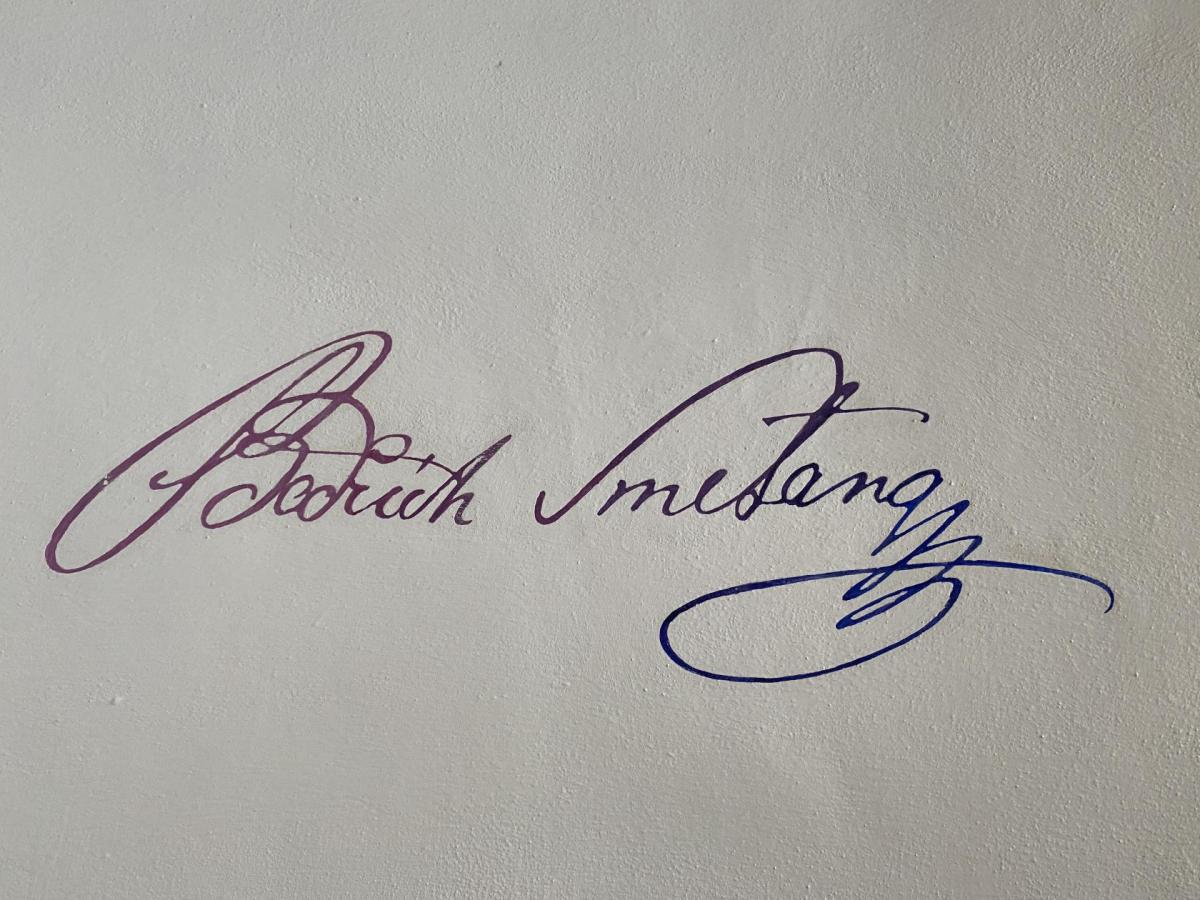 Bedřich Smetana